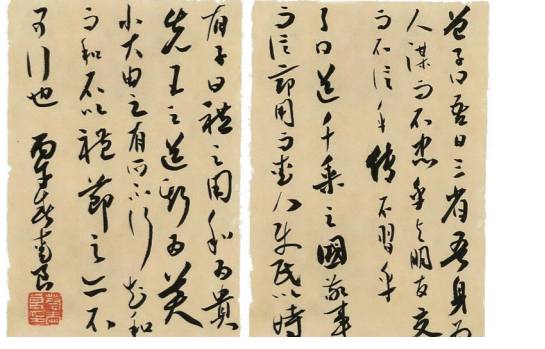 曾子曰吾日三省吾身為
人謀而不忠乎與朋友交
而不信乎傳不習乎
子曰道千乘之國敬事
而信節用而愛人使民以時
有子曰禮之用和為貴
先王之道斯為美
小大由之有所不行知和
而和不以禮節之亦不
可行也 丙午